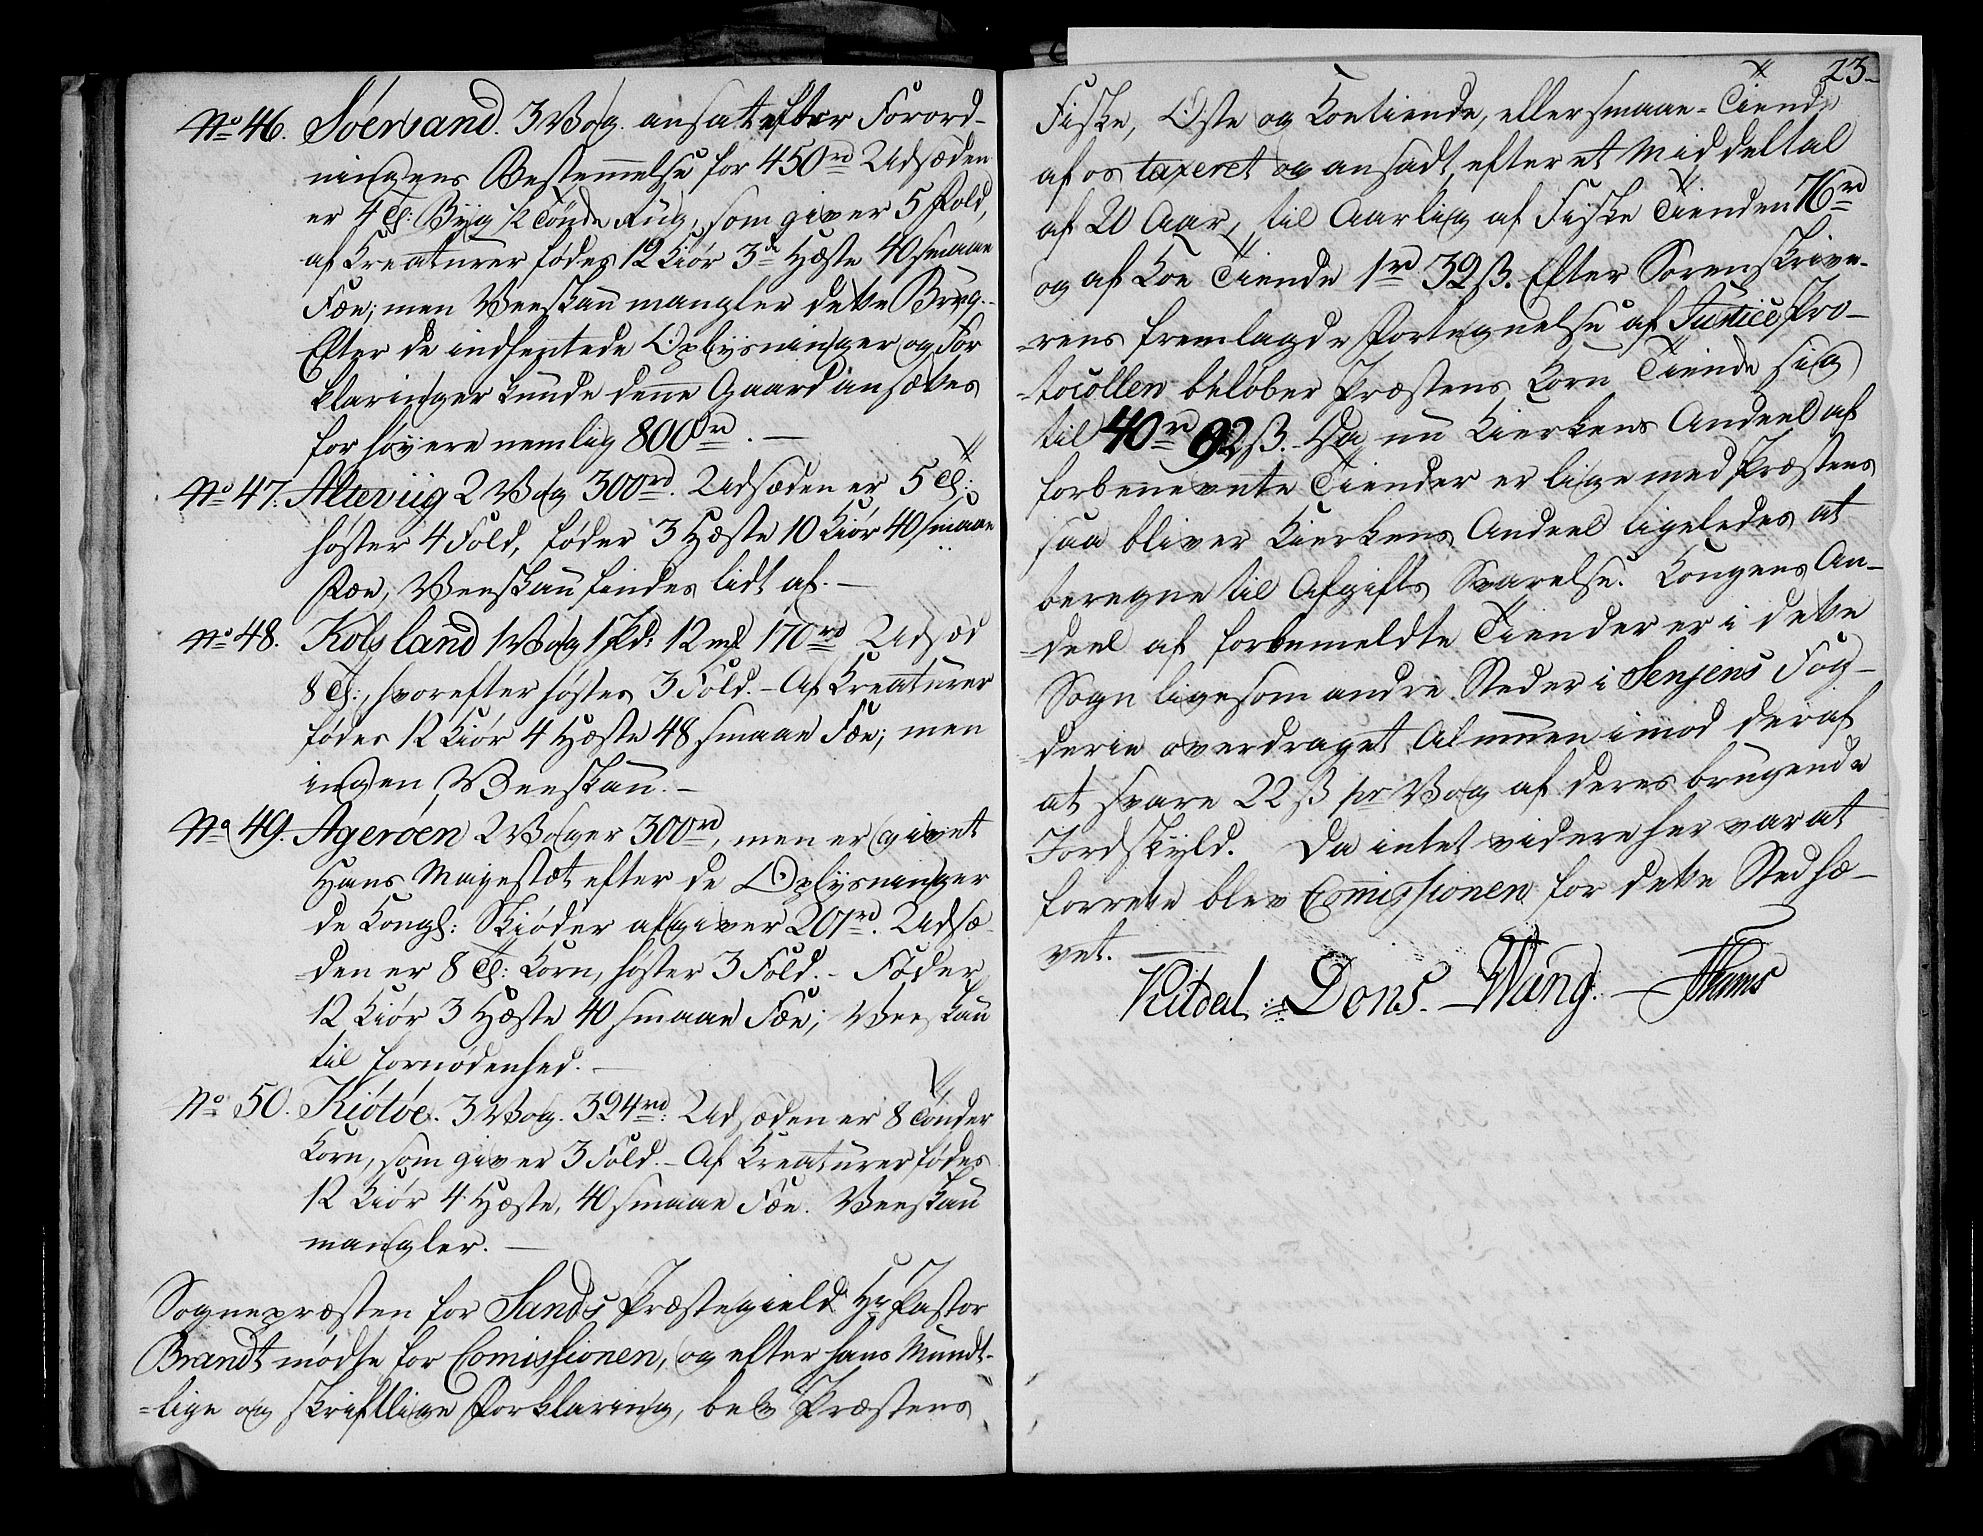 No 46. Sörvsand. 3 Vog. ansat efter Forord-
ningens Bestemelse for 450rd Udsæden
er 4 Td: Byg 1/2 Tønde Rug, som giver 5 Fold,
af Kreaturer födes 12 Kiör 3de Hæste 40 smaae
Fæe; men Veeskau mangler dette Brug.
Efter de indhentede Oplysninger og For
klaringer kunde denne Gaard ansættes
for høyere nemlig 800rd. —
No 47. Altevиig 2 Vog 300rd. Udsæden er 5 Td:
høster 4 Fold, føder 3 Hæste 10 Kiör 40 smaae
Fæe, Veeskau findes lidt af. —
No 48. Kolsland 1 Vog 1 Pd: 12 mk 170rd Udsæd
8 Td:, hvorefter høstes 3 Fold. – Af Kreaturer
födes 12 Kiör 4 Hæste 48 smaae Fæe; men
ingen Veeskau. –
No 49. Ageröen 2 Voger 300rd, men er givet
Hans Mayestæt efter de Oplysninger
de Kongl: Skiøder afgiver 207rd. Udsæ-
den er 8 Td: Korn, høster 3 Fold. – Föder
12 Kiör 3 Hæste 40 smaae Fæe; Veeskau
til fornødenhed. —
No 50. Kiötöe. 3 Vog. 394rd: Udsæden er 8 Tönder
Korn, som giver 3 Fold. – Af Kreaturer födes
12 Kiör 4 Hæste, 40 smaae Fæe. Veeskau
mangler. —
Sognepræsten for Sands Præstegield Hr Pastor
Brandt mödte for Comissionen, og efter hans Mundt-
-lige og skriftlige Forklaring, blev Præstens
23.
Fiske, Oste og Koetiende, eller smaae-Tiende
af os taxeret og ansadt, efter et Middeltal
af 20 Aar, til Aarlig af Fiske Tienden 76rd
og af Koe Tiende 1rd 32ß. Efter Sorenskrive-
-rens fremlagde Fortegnelse af Justice Pro-
-tocollen beløber Præstens Korn Tiende sig
til 40rd 92ß. Da nu Kierkens Andeel af
forbenevnte Tiender er lige med Præstens
saa bliver Kierkens Andeel ligeledes at
beregne til Afgifts Svarelse. Kongens An-
-deel af forbemeldte Tiender er i dette
Sogn ligesom andre Steder i Senjens Fog-
derie overdraget Almuen imod deraf
at svare 22ß pr Vog af deres brugende
Jordskyld. Da intet videre her var at
forrette blev Comissionen for dette Sted hæ-
vet. —
Kildal. Dons. – Wang. –